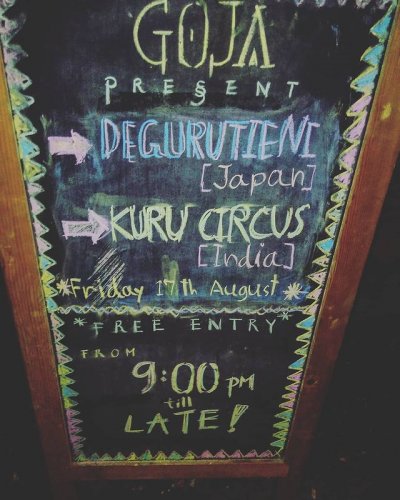 GOJA
PRESENT
DEGURUTIENI
[Japan]
KURU CIRCUS
[India]
*Friday 17th August*
*FREE ENTRY*
FROM
9:00 PM
till
LATE!